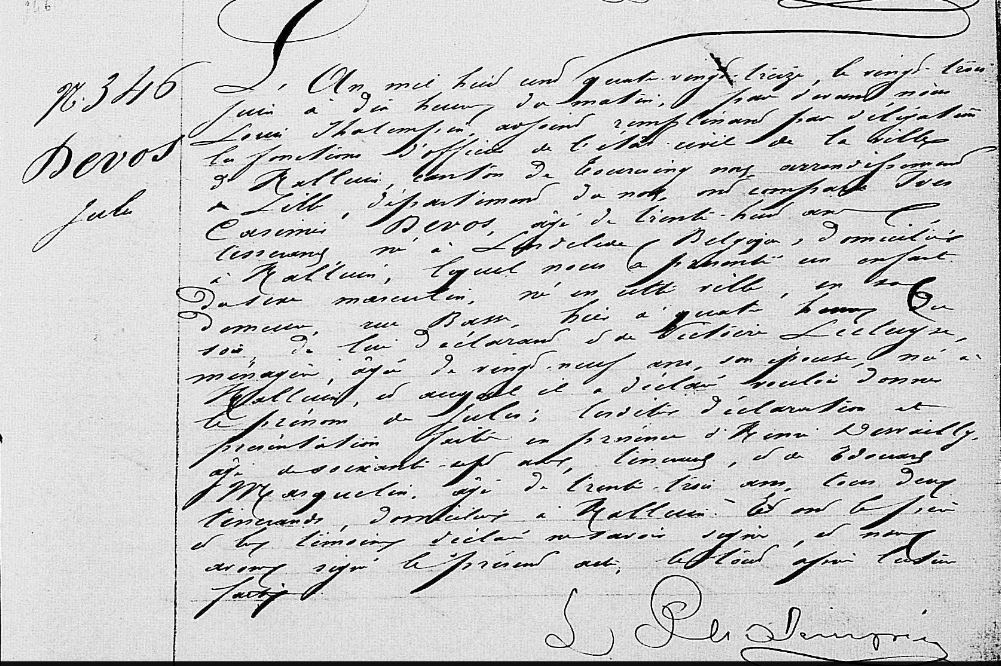 N. 346
Devos
Jules
L'An mil huit cent quatre-vingt-treize, le vingt-trois
Juin à dix heures du matin, par devant nous
Louis adjoint remplissant par délégation
les fonctions d'officier de l'état civil de la ville
d'Halluin, canton de Tourcoing nord, arrondissement
de Lille, département du nord, ont comparu Yves
Casimir Devos, âgé de trente-huit ans
tisserand, né à Belgique, domicilié
à Halluin, lequel nous a présenté un enfant
du sexe masculin, né en cette ville, en sa
demeure, rue Basse, hier à quatre heures du
soir, de lui déclarant et de Victoire
ménagère, âgée de vingt-neuf ans, son épouse, née à
Halluin, et auquel il a déclaré vouloir donner
le prénom de Jules; lesdites déclaration et
présentation faites en présence d'Henri
âgé de soixante-sept ans, tisserand, et de Edouard
Masquelin, âgé de trente-trois ans, tous deux
tisserands, domiciliés à Halluin. Et ont le père
et les témoins déclaré ne savoir signer, et nous
avons signé le présent acte, le tout après lecture
faite